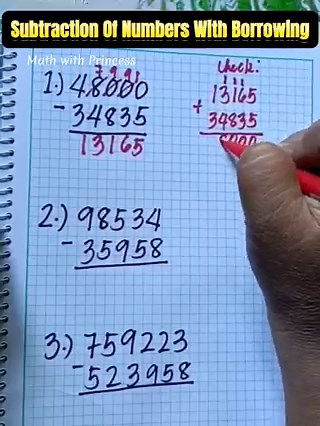 Subtraction Of Numbers With Borrowing
Math with Princess
7 9 9 1
1.) 48000
- 34835
13165
check:
1 1 1
13165
+ 34835
8000
2.) 98534
- 35958
3.) 759223
- 523958